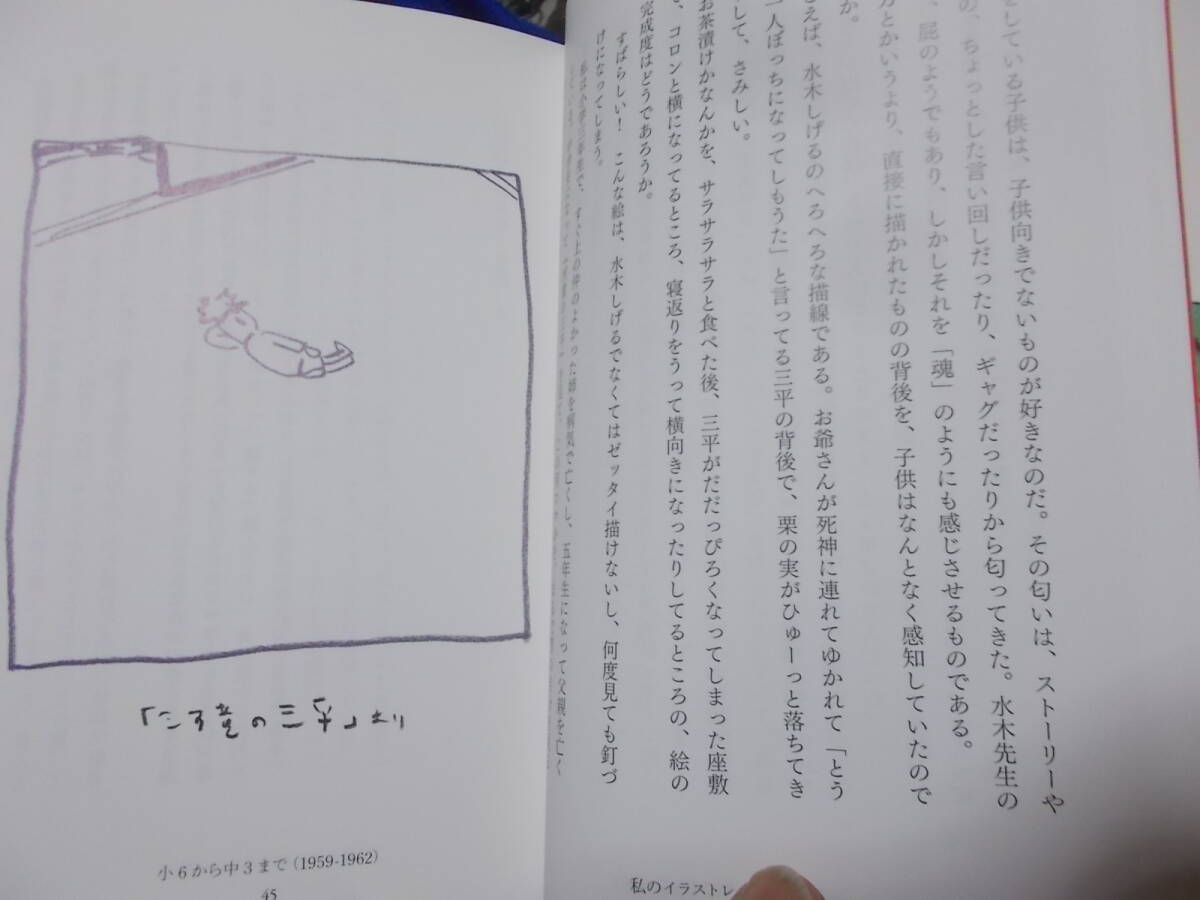 としている子供は、子供向きでないものが好きなのだ。その匂いは、ストーリーや
の、ちょっとした言い回しだったり、ギャグだったりから匂ってきた。水木先生の
、屁のようでもあり、しかしそれを「魂」のようにも感じさせるものである。
方とかいうより、直接に描かれたものの背後を、子供はなんとなく感知していたので
か。
えば、水木しげるのへろへろな描線である。お爺さんが死神に連れてゆかれて「とう
一人ぼっちになってしもうた」と言ってる三平の背後で、栗の実がひゅーっと落ちてき
して、さみしい。
お茶漬けかなんかを、サラサラサラと食べた後、三平がだだっぴろくなってしまった座敷
、コロンと横になってるところ、寝返りをうって横向きになったりしてるところの、絵の
完成度はどうであろうか。
すばらしい! こんな絵は、水木しげるでなくてはゼッタイ描けないし、何度見ても釘づ
けになってしまう。
すぐ上の仲のよかった姉を病気で亡くし、五年生になって父親を亡く
私のイラストレ
の三平」より
小6から中3まで(1959-1962)
45